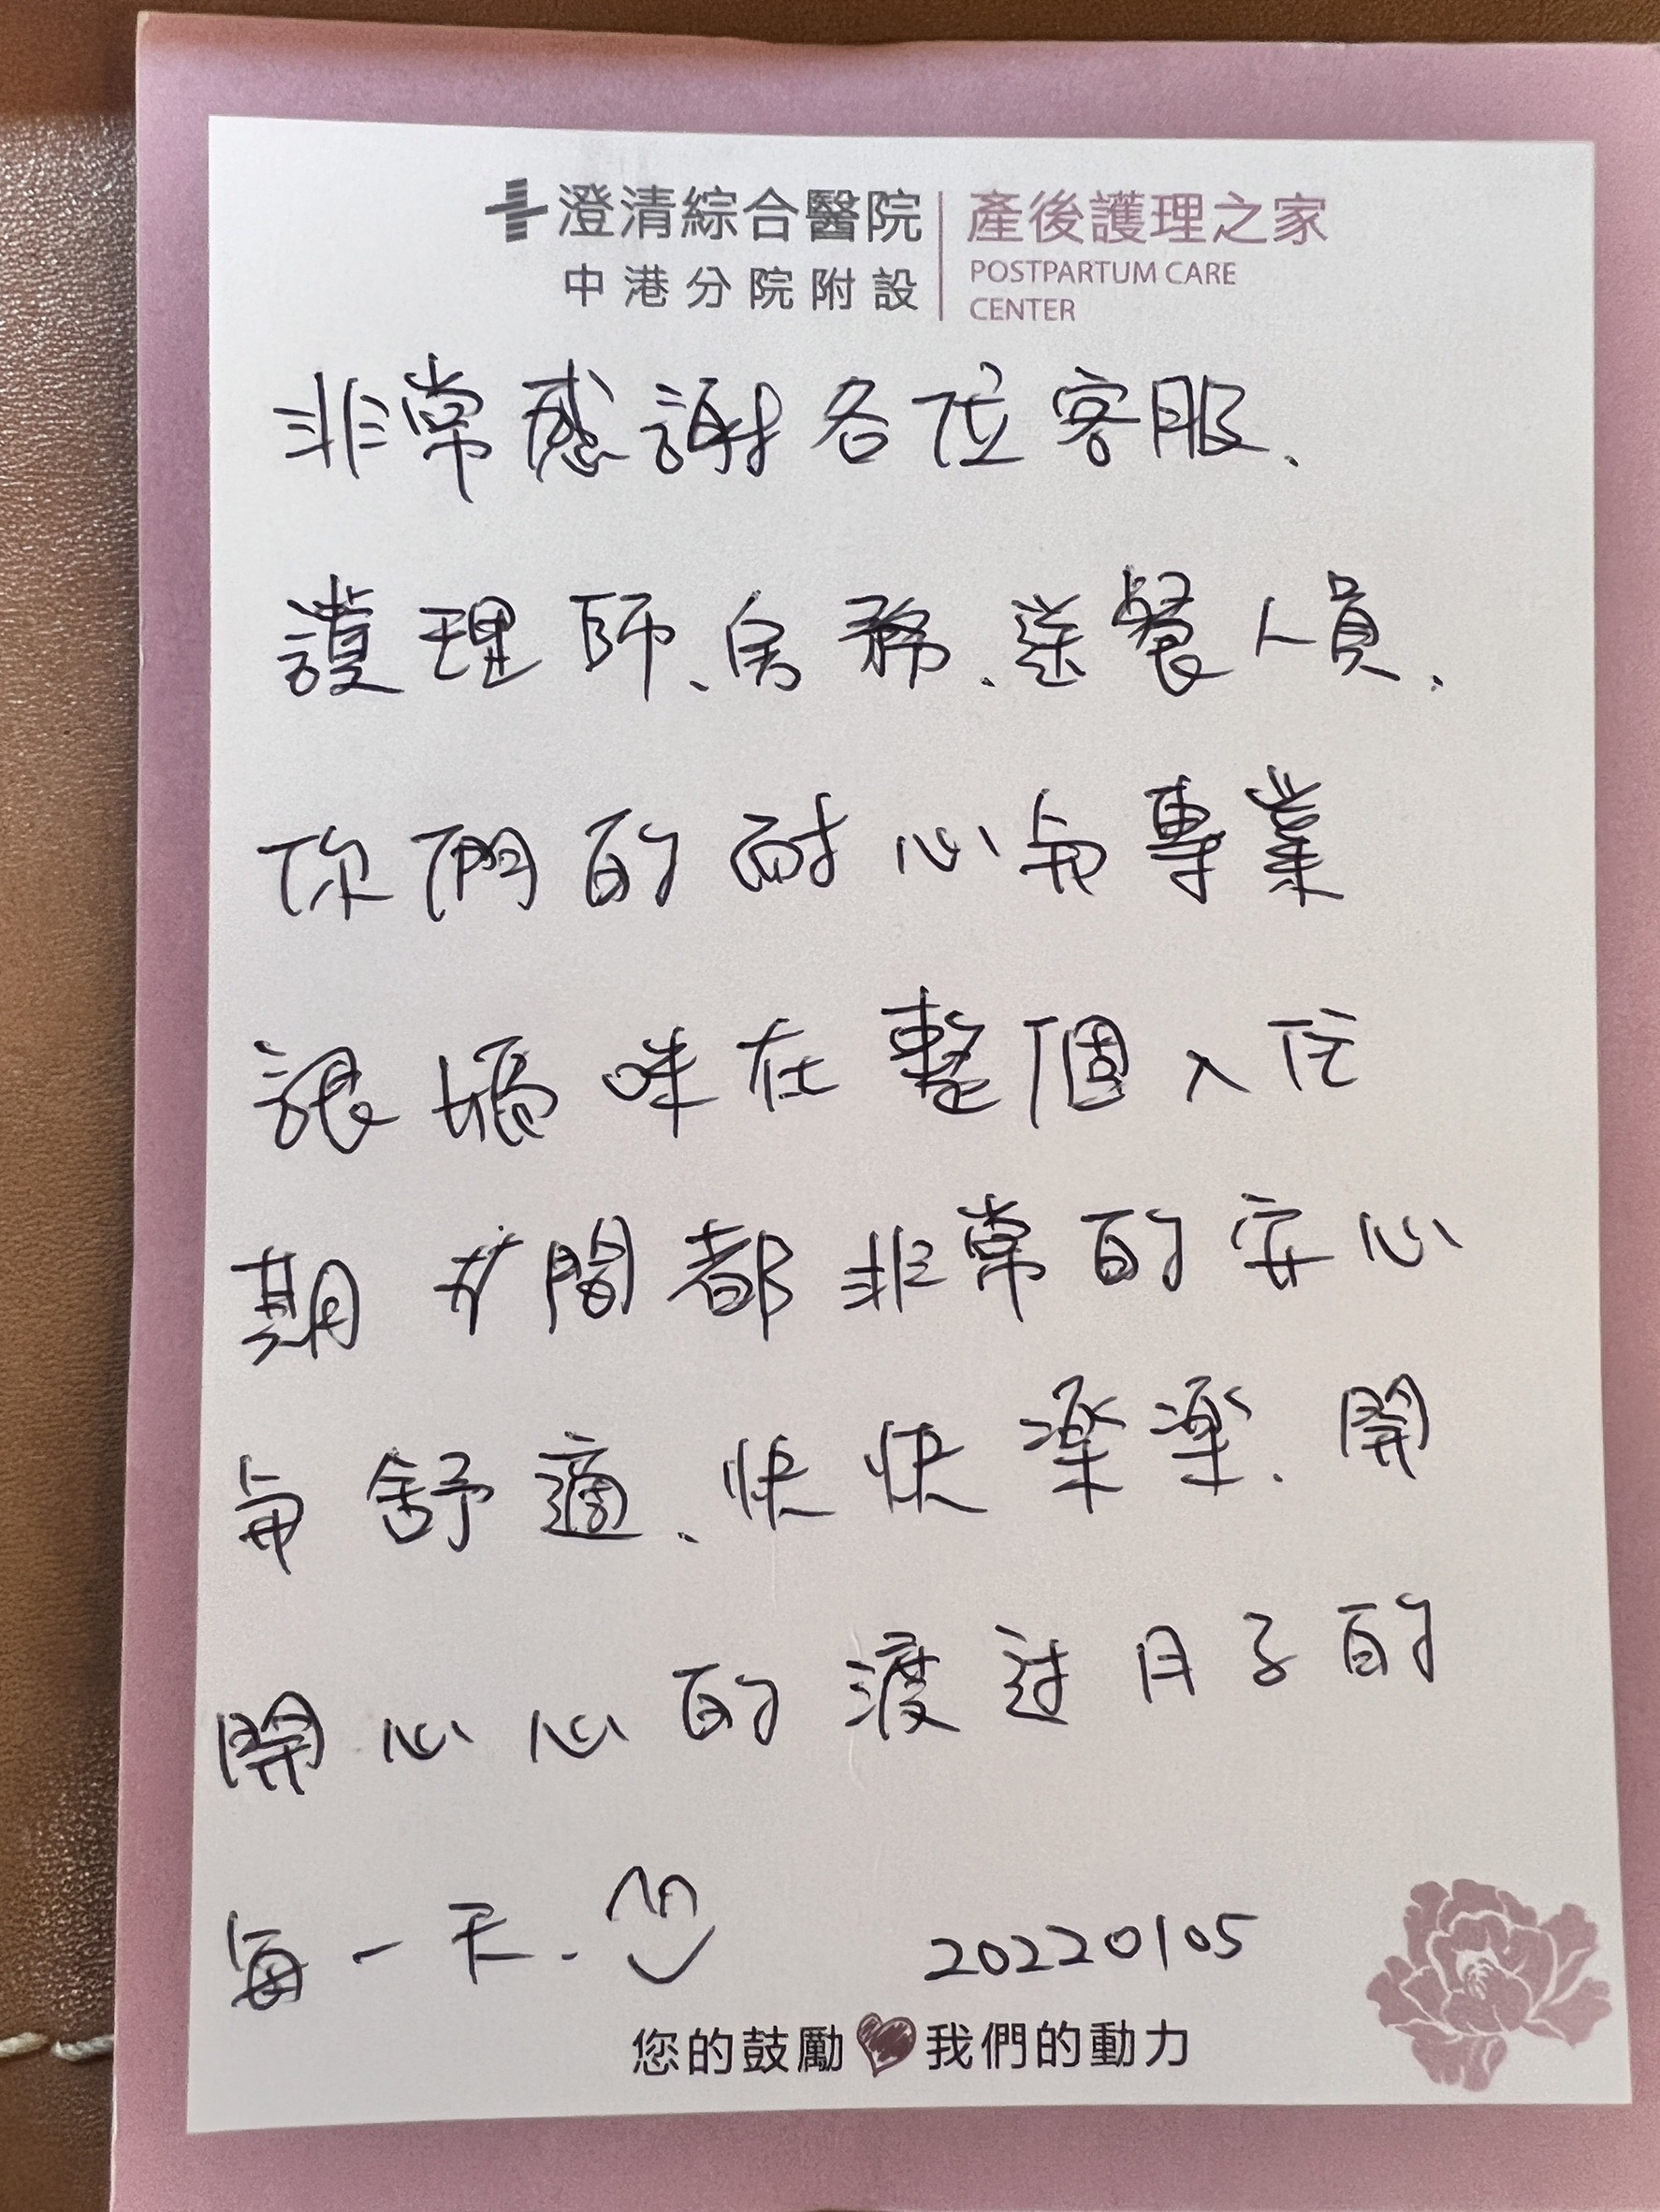 澄清綜合醫院
中港分院附設
產後護理之家
POSTPARTUM CARE
CENTER
非常感謝各位客服、
護理師、房務、送餐人員、
你們的耐心與專業
讓媽咪在整個入住
期 間都非常的安心
與舒適、快快樂樂、開
開心心的渡过月子的
每一天.
20220105
您的鼓勵 我們的動力